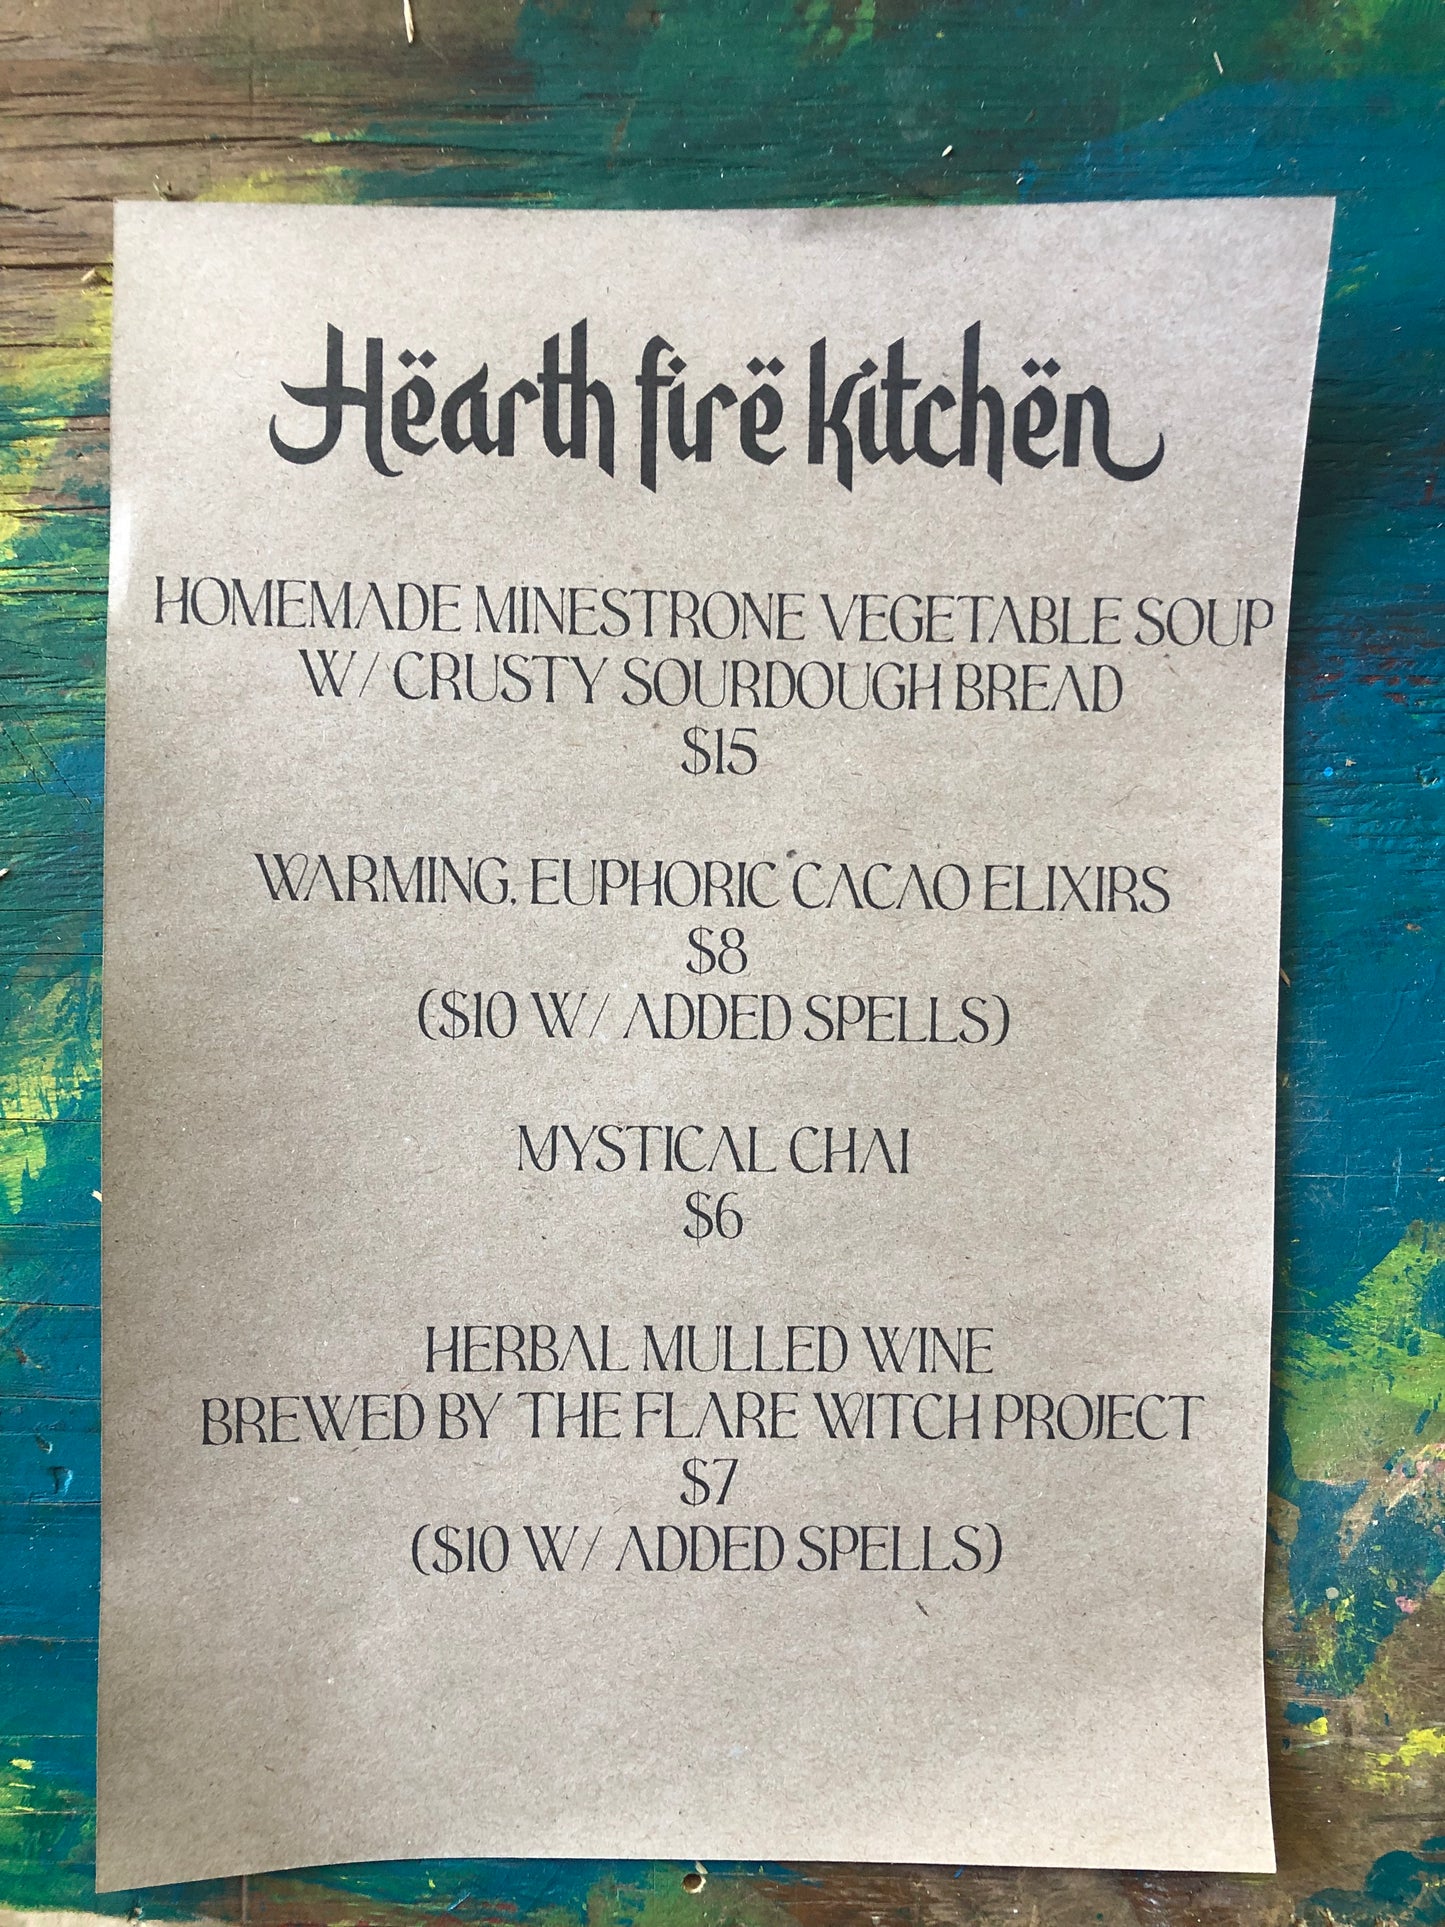 Hëarth firë kitchën
HOMEMADE MINESTRONE VEGETABLE SOUP
W/ CRUSTY SOURDOUGH BREAD
$15
WARMING, EUPHORIC CACAO ELIXIRS
$8
($10 W/ ADDED SPELLS)
MYSTICAL CHAI
$6
HERBAL MULLED WINE
BREWED BY THE FLARE WITCH PROJECT
$7
($10 W/ ADDED SPELLS)